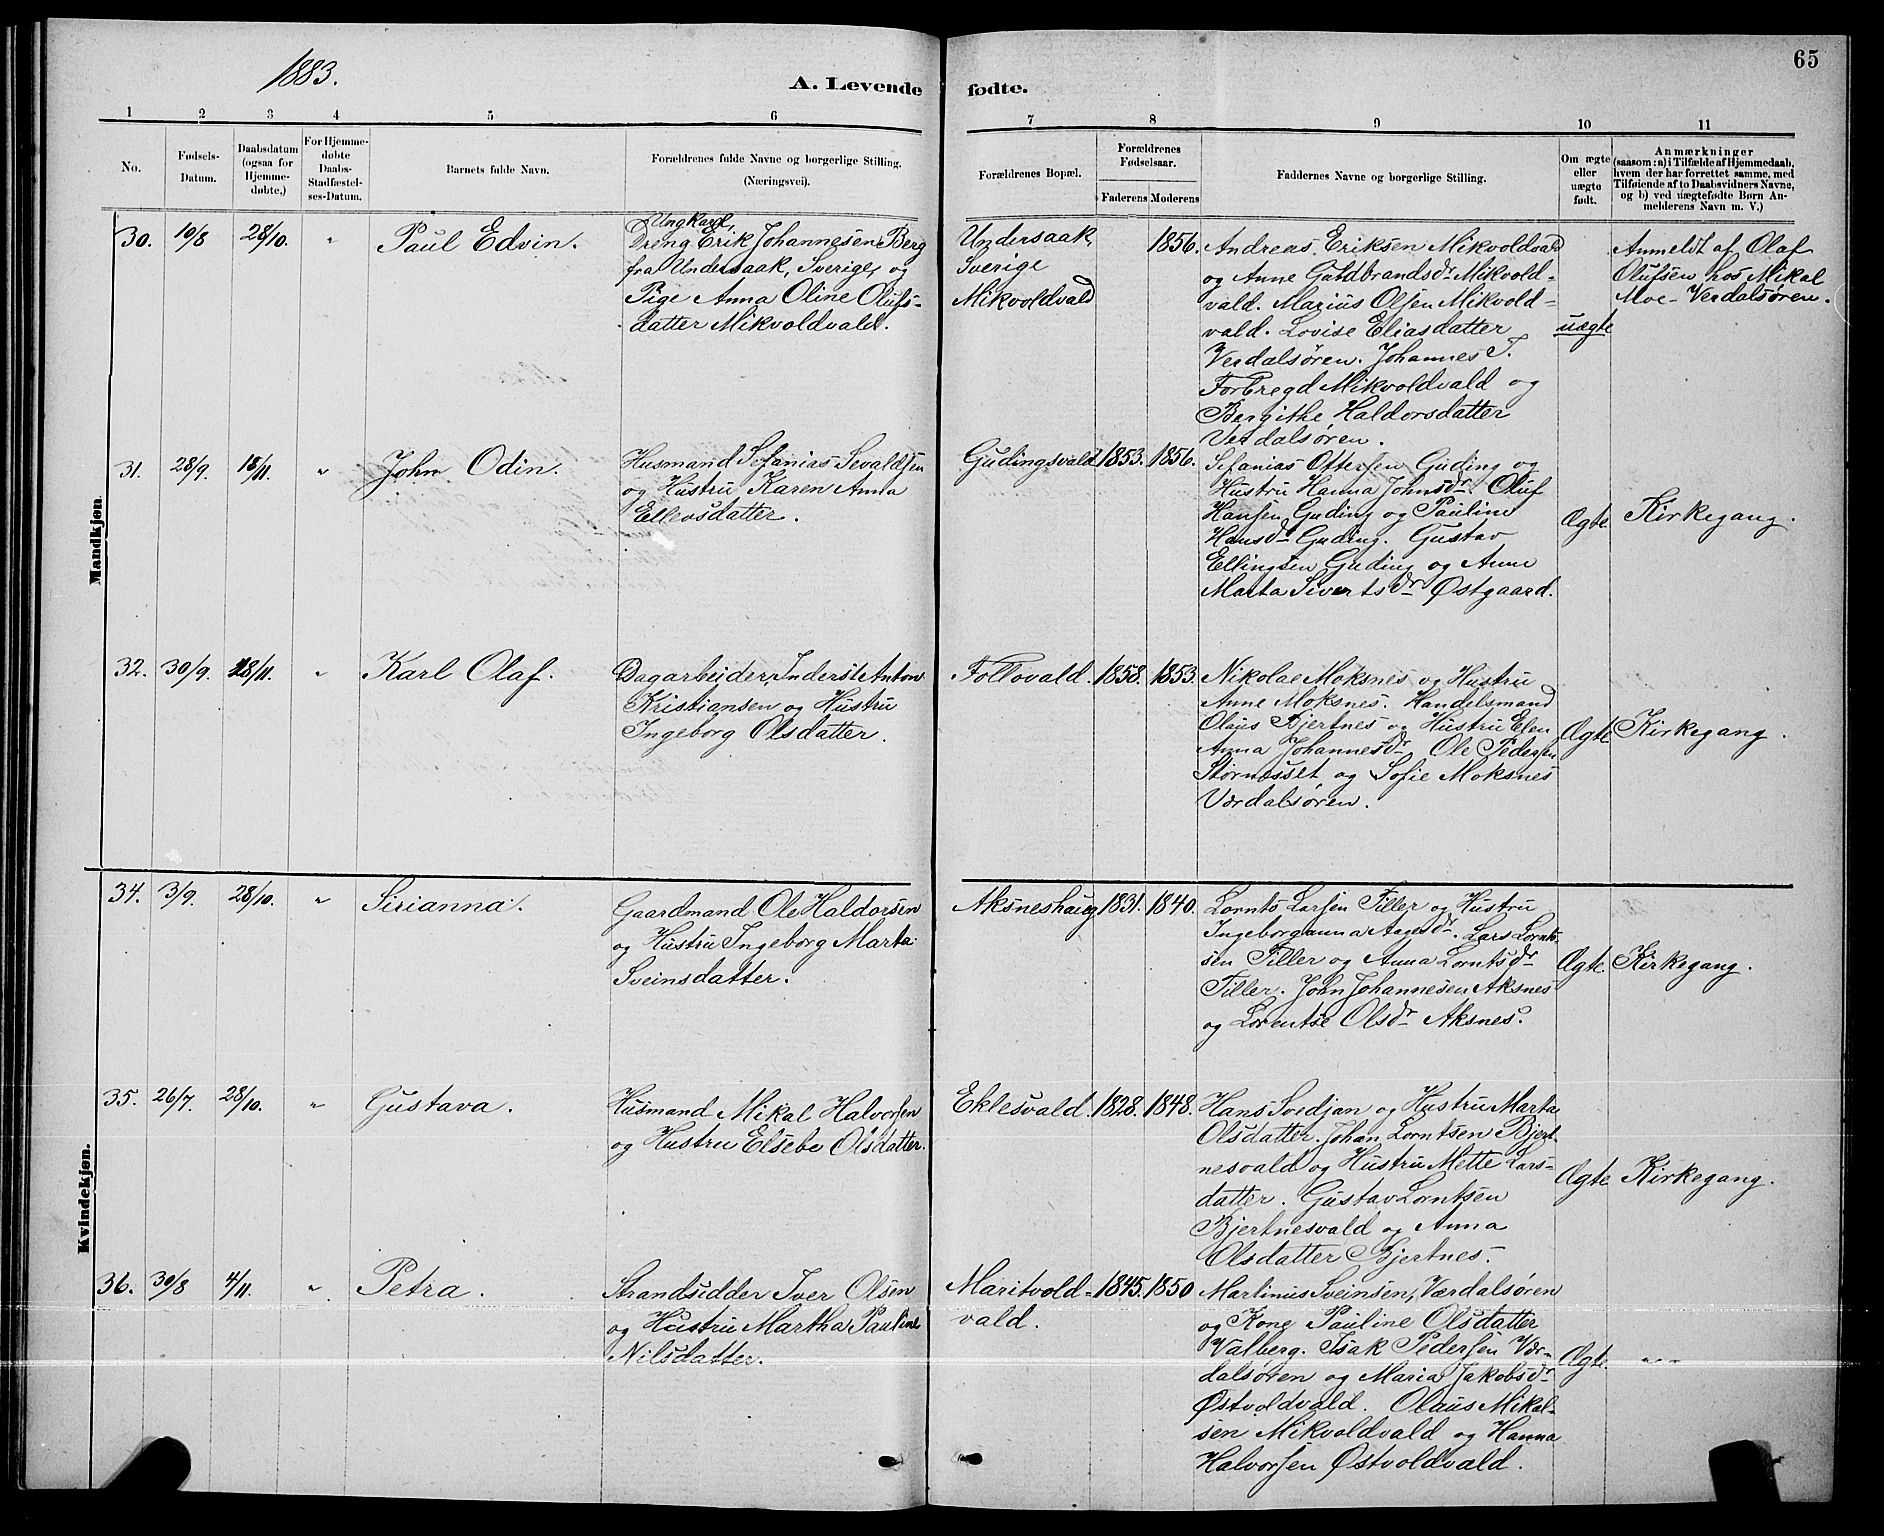 1883.
A. Levende
fødte.
65
1 2 3 4 5 6
7 8 9 10 11
No.
Fødsels-
Datum.
Daabsdatum
(ogsaa for
Hjemme-
døbte,)
For Hjemme-
døbte
Daabs-
Stadfæstel-
ses-Datum.
Barnets fulde Navn.
Forældrenes fulde Navne og borgerlige Stilling.
(Næringsvei).
Forældrenes Bopæl.
Forældrenes
Fødselsaar.
Faderens
Moderens
Faddernes Navne og borgerlige Stilling.
Om ægte
eller
uægte
født.
Anmærkninger
(saasom: a) i Tilfælde af Hjemmedaab,
hvem der har forrettet samme, med
Tilføiende af to Daabsvidners Navne,
og b) ved uægtefødte Børn An-
melderens Navn m. V.)
Mandkjøn.
30. 10/8 28/10. " Paul Edvin.
Ungkarl,
Dreng Erik Johannesen Berg
fra Undersaak, Sverige, og
Pige Anna Oline Olufs-
datter Mikvoldvald.
Undersaak,
Sverige
Mikvoldvald
1856.
Andreas Eriksen Mikvoldvald
og Anne Guldbrandsdr Mikvold-
vald. Marius Olsen Mikvold-
vald. Lovise Eliasdatter
Verdalsøren. Johannes T.
Forbregd Mikvoldvald og
Bergithe Haldorsdatter
Verdalsøren.
uægte
Anmeldt af Olaf
Olufsen hos Mikal
Moe - Verdalsøren.
31. 28/9. 18/11. " John Odin.
Husmand Sefanias Sevaldsen
og Hustru Karen Anna
Ellevsdatter.
Gudingsvald 1853. 1856.
Sefanias Ottersen Guding og
Hustru Hanna Johnsdr. Oluf
Hansen Guding og Pauline
Hansdr Guding. Gustav
Ellingsen Guding og Anne
Marta Sivertsdr Østgaard.
Ægte
Kirkegang.
32. 30/9. 18/11. " Karl Olaf.
Dagarbeider, Inderst Anton
Kristiansen og Hustru
Ingeborg Olsdatter.
Follovald. 1858. 1853.
Nikolae Moksnes og Hustru
Anne Moksnes. Handelsmand
Olaus Bjertnes og Hustru Elen
Anna Johannesdr Ole Pedersen
Størnesset og Sofie Moksnes
Værdalsøren.
Ægte
Kirkegang.
Kvindekjøn.
34. 3/9. 28/10. " Sirianna.
Gaardmand Ole Haldorsen
og Hustru Ingeborg Marta
Sveinsdatter.
Aksneshaug 1831. 1840.
Lornts Larsen Tiller og Hustru
Ingeborganna Aagesdr. Lars Lornt-
sen Tiller og Anna Lorntsdr
Tiller. John Johannesen Aksnes
og Lorentse Olsdr Aksnes.
Ægte.
Kirkegang.
35. 26/7. 28/10. " Gustava.
Husmand Mikal Halvorsen
og Hustru Elsebe Olsdatter.
Eklesvald. 1828. 1848.
Hans Svedjan og Hustru Marta
Olsdatter. Johan Lorntsen Bjert-
nesvald og Hustru Mette Lars-
datter. Gustav Lorntsen
Bjertnesvald og Anna
Olsdatter Bjertnes.
Ægte
Kirkegang.
36. 30/8 4/11. " Petra.
Strandsidder Iver Olsen
og Hustru Martha Pauline
Nilsdatter.
Maritvold-
vald.
1845. 1850
Martinus Sveinsen, Værdalsøren
og Kone Pauline Olsdatter
Valberg. Isak Pedersen Vær-
dalsøren og Maria Jakobsdr
Østvoldvald. Olaus Mikal-
sen Mikvoldvald og Hanna
Halvorsen Østvoldvald.
Ægte.
" " "